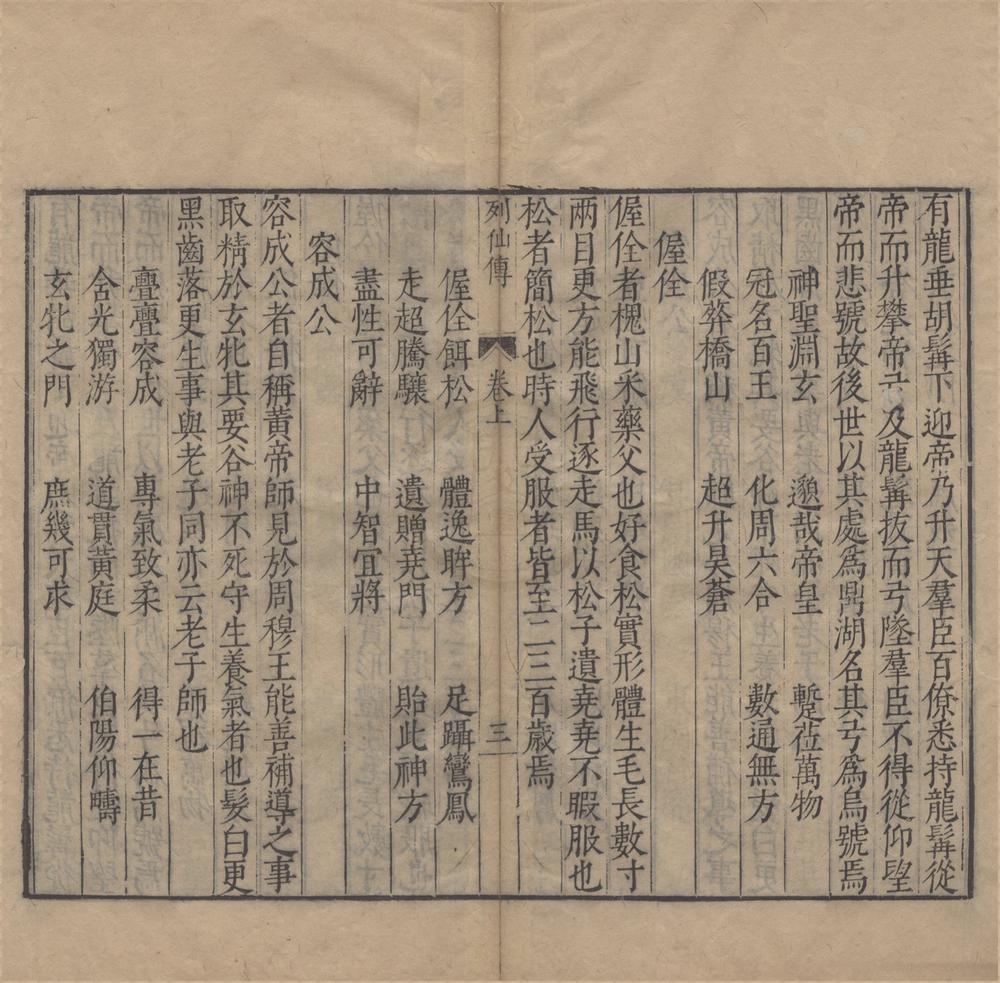 有龍垂胡髯下迎帝乃升天羣臣百僚悉持龍髯從
帝而升攀帝弓及龍髯拔而弓墜羣臣不得從仰望
帝而悲號故後世以其處為鼎湖名其弓為烏號焉
神聖淵玄 邈哉帝皇 蹔莅萬物
冠名百王 化周六合 數通無方
假葬橋山 超升昊蒼
偓佺
偓佺者槐山采藥父也好食松實形體生毛長數寸
兩目更方能飛行逐走馬以松子遺堯堯不暇服也
松者簡松也時人受服者皆至二三百歲焉
列仙傳 卷上 三
偓佺餌松 體逸眸方 足躡鸞鳳
走超騰驤 遺贈堯門 貽此神方
盡性可辭 中智宜將
容成公
容成公者自稱黃帝師見於周穆王能善補導之事
取精於玄牝其要谷神不死守生養氣者也髮白更
黑齒落更生事與老子同亦云老子師也
亹亹容成 專氣致柔 得一在昔
含光獨游 道貫黃庭 伯陽仰疇
玄牝之門 庶幾可求